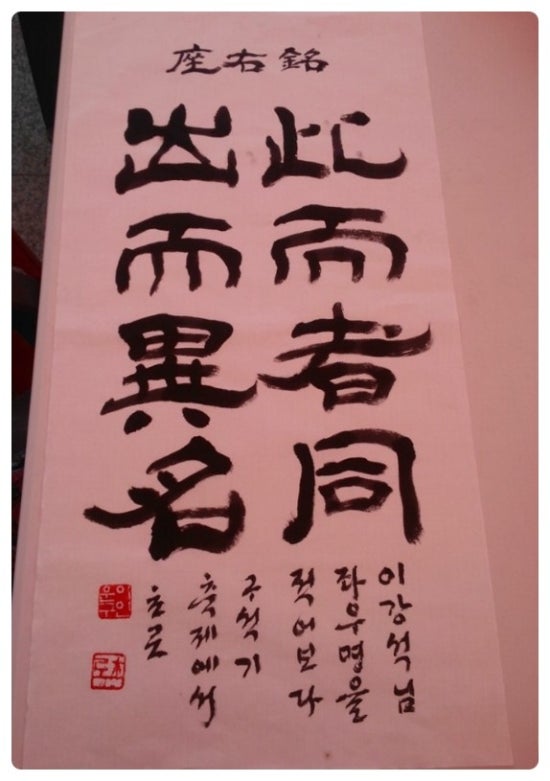 座右銘
此而者同
出而異名
이강석님
좌우명을
적어보다
구석기
축제에서